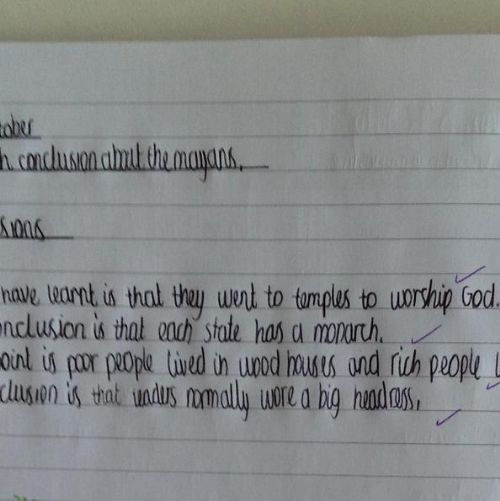 tober
h conclusion about the mayans.
sions
have learnt is that they went to temples to worship God.
nclusion is that each state has a monarch.
oint is poor people lived in wood houses and rich people l
clusion is that leaders normally wore a big headress.